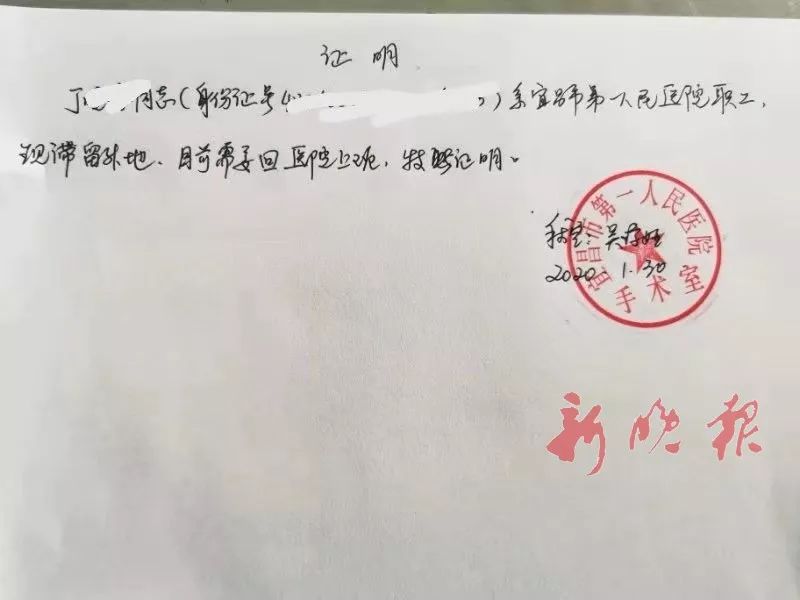 证明
丁 同志(身份证号4 )系宜昌市第一人民医院职工,
现滞留外地、目前需要回医院上班,特此证明。
宜昌市第一人民医院
吴
2020.1.30
手术室
新晚报